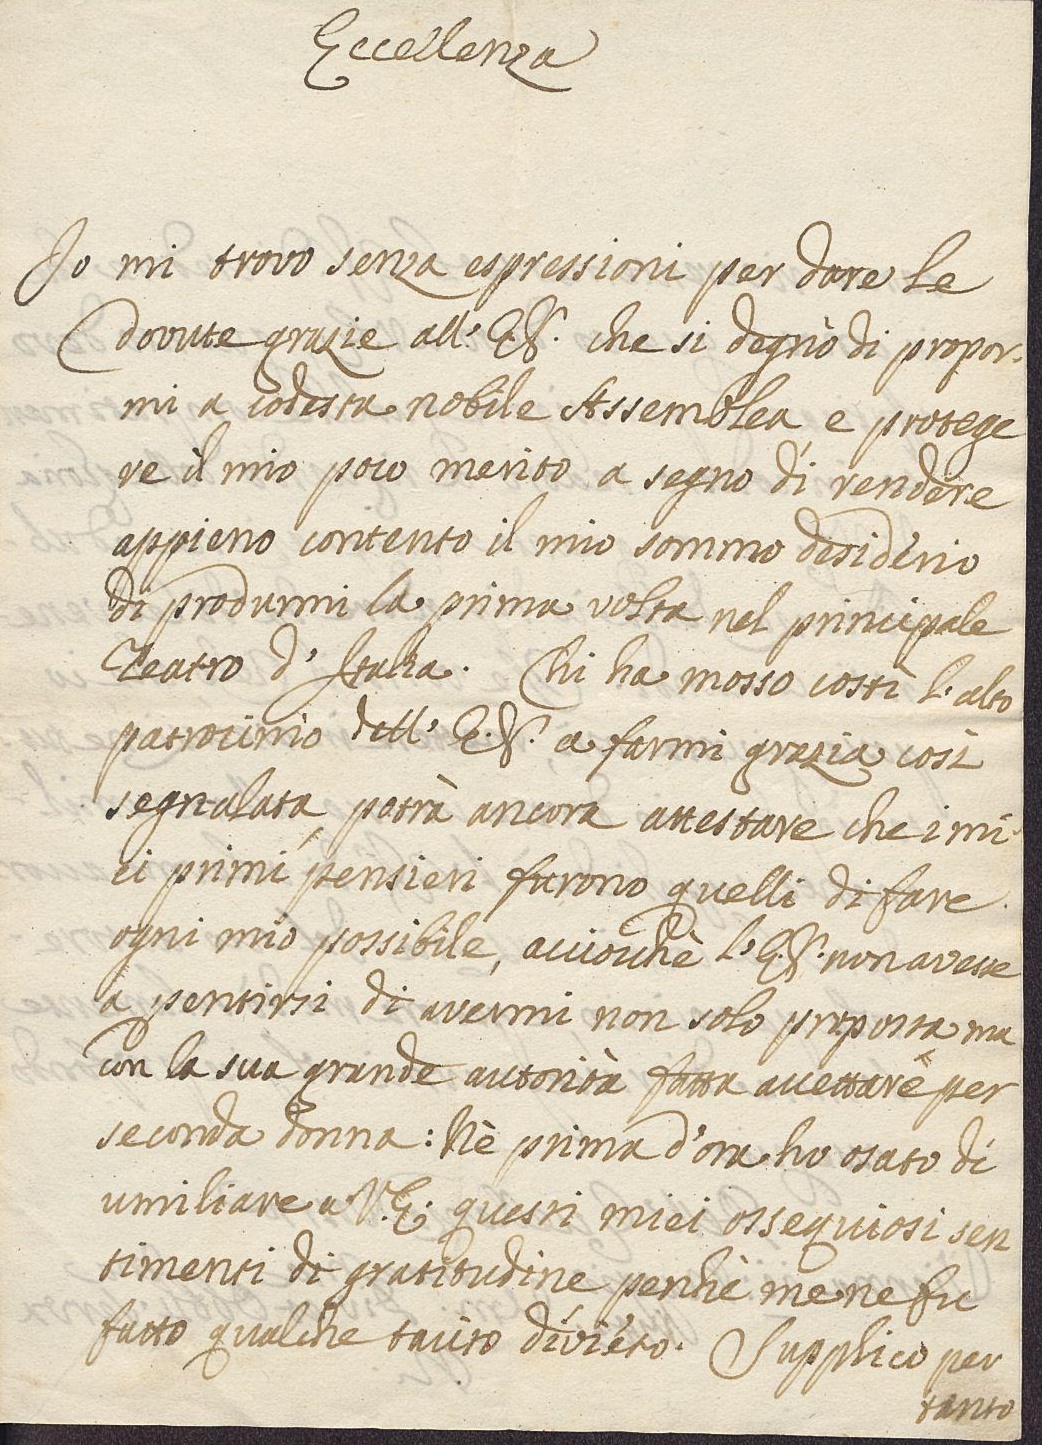 Eccellenza
Io mi trovo senza espressioni per dare le
dovute grazie all'E.V. che si degnò di propor-
mi a codesta nobile Assemblea, e protege
re il mio poco merito a segno di rendere
appieno contento il mio sommo desiderio
di produrmi la prima volta nel principale
Teatro d'Italia. Chi ha mosso costì l'alto
patrocinio dell'E.V. a farmi grazia così
segnalata, potrà ancora attestare che i mi-
ei primi pensieri furono quelli di fare
ogni mio possibile, acciochè l'E.V. non avesse
a pentirsi di avermi non solo proposta ma
con la sua grande autorità fatta accettare per
seconda donna: Nè prima d'ora ho osato di
umiliare a V.E. questi miei ossequiosi sen
timenti di gratitudine perchè me ne fu
fatto qualche tacito divieto. Supplico per
tanto